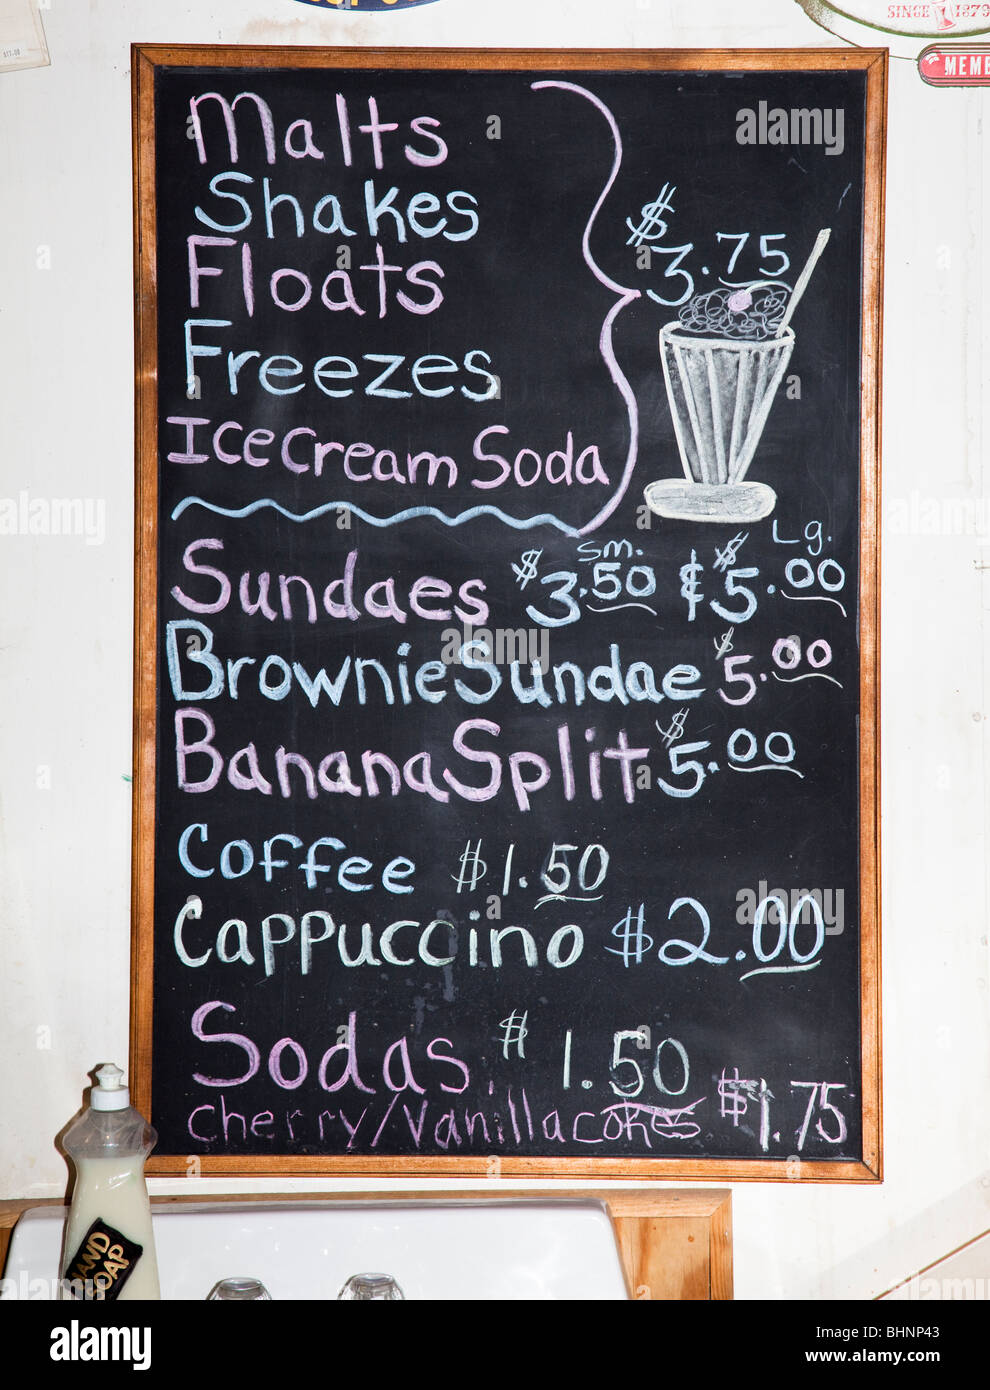 SINCE 1879
MEMB
Malts
Shakes
Floats
Freezes
Ice Cream Soda
$3.75
Sm. Lg.
Sundaes $3.50 & $5.00
Brownie Sundae $5.00
Banana Split $5.00
Coffee $1.50
Cappuccino $2.00
Sodas. $1.50
Cherry/Vanilla cokes $1.75
HAND
SOAP
alamy
alamy
alamy
alamy stock photo
Image ID: BHNP43
www.alamy.com